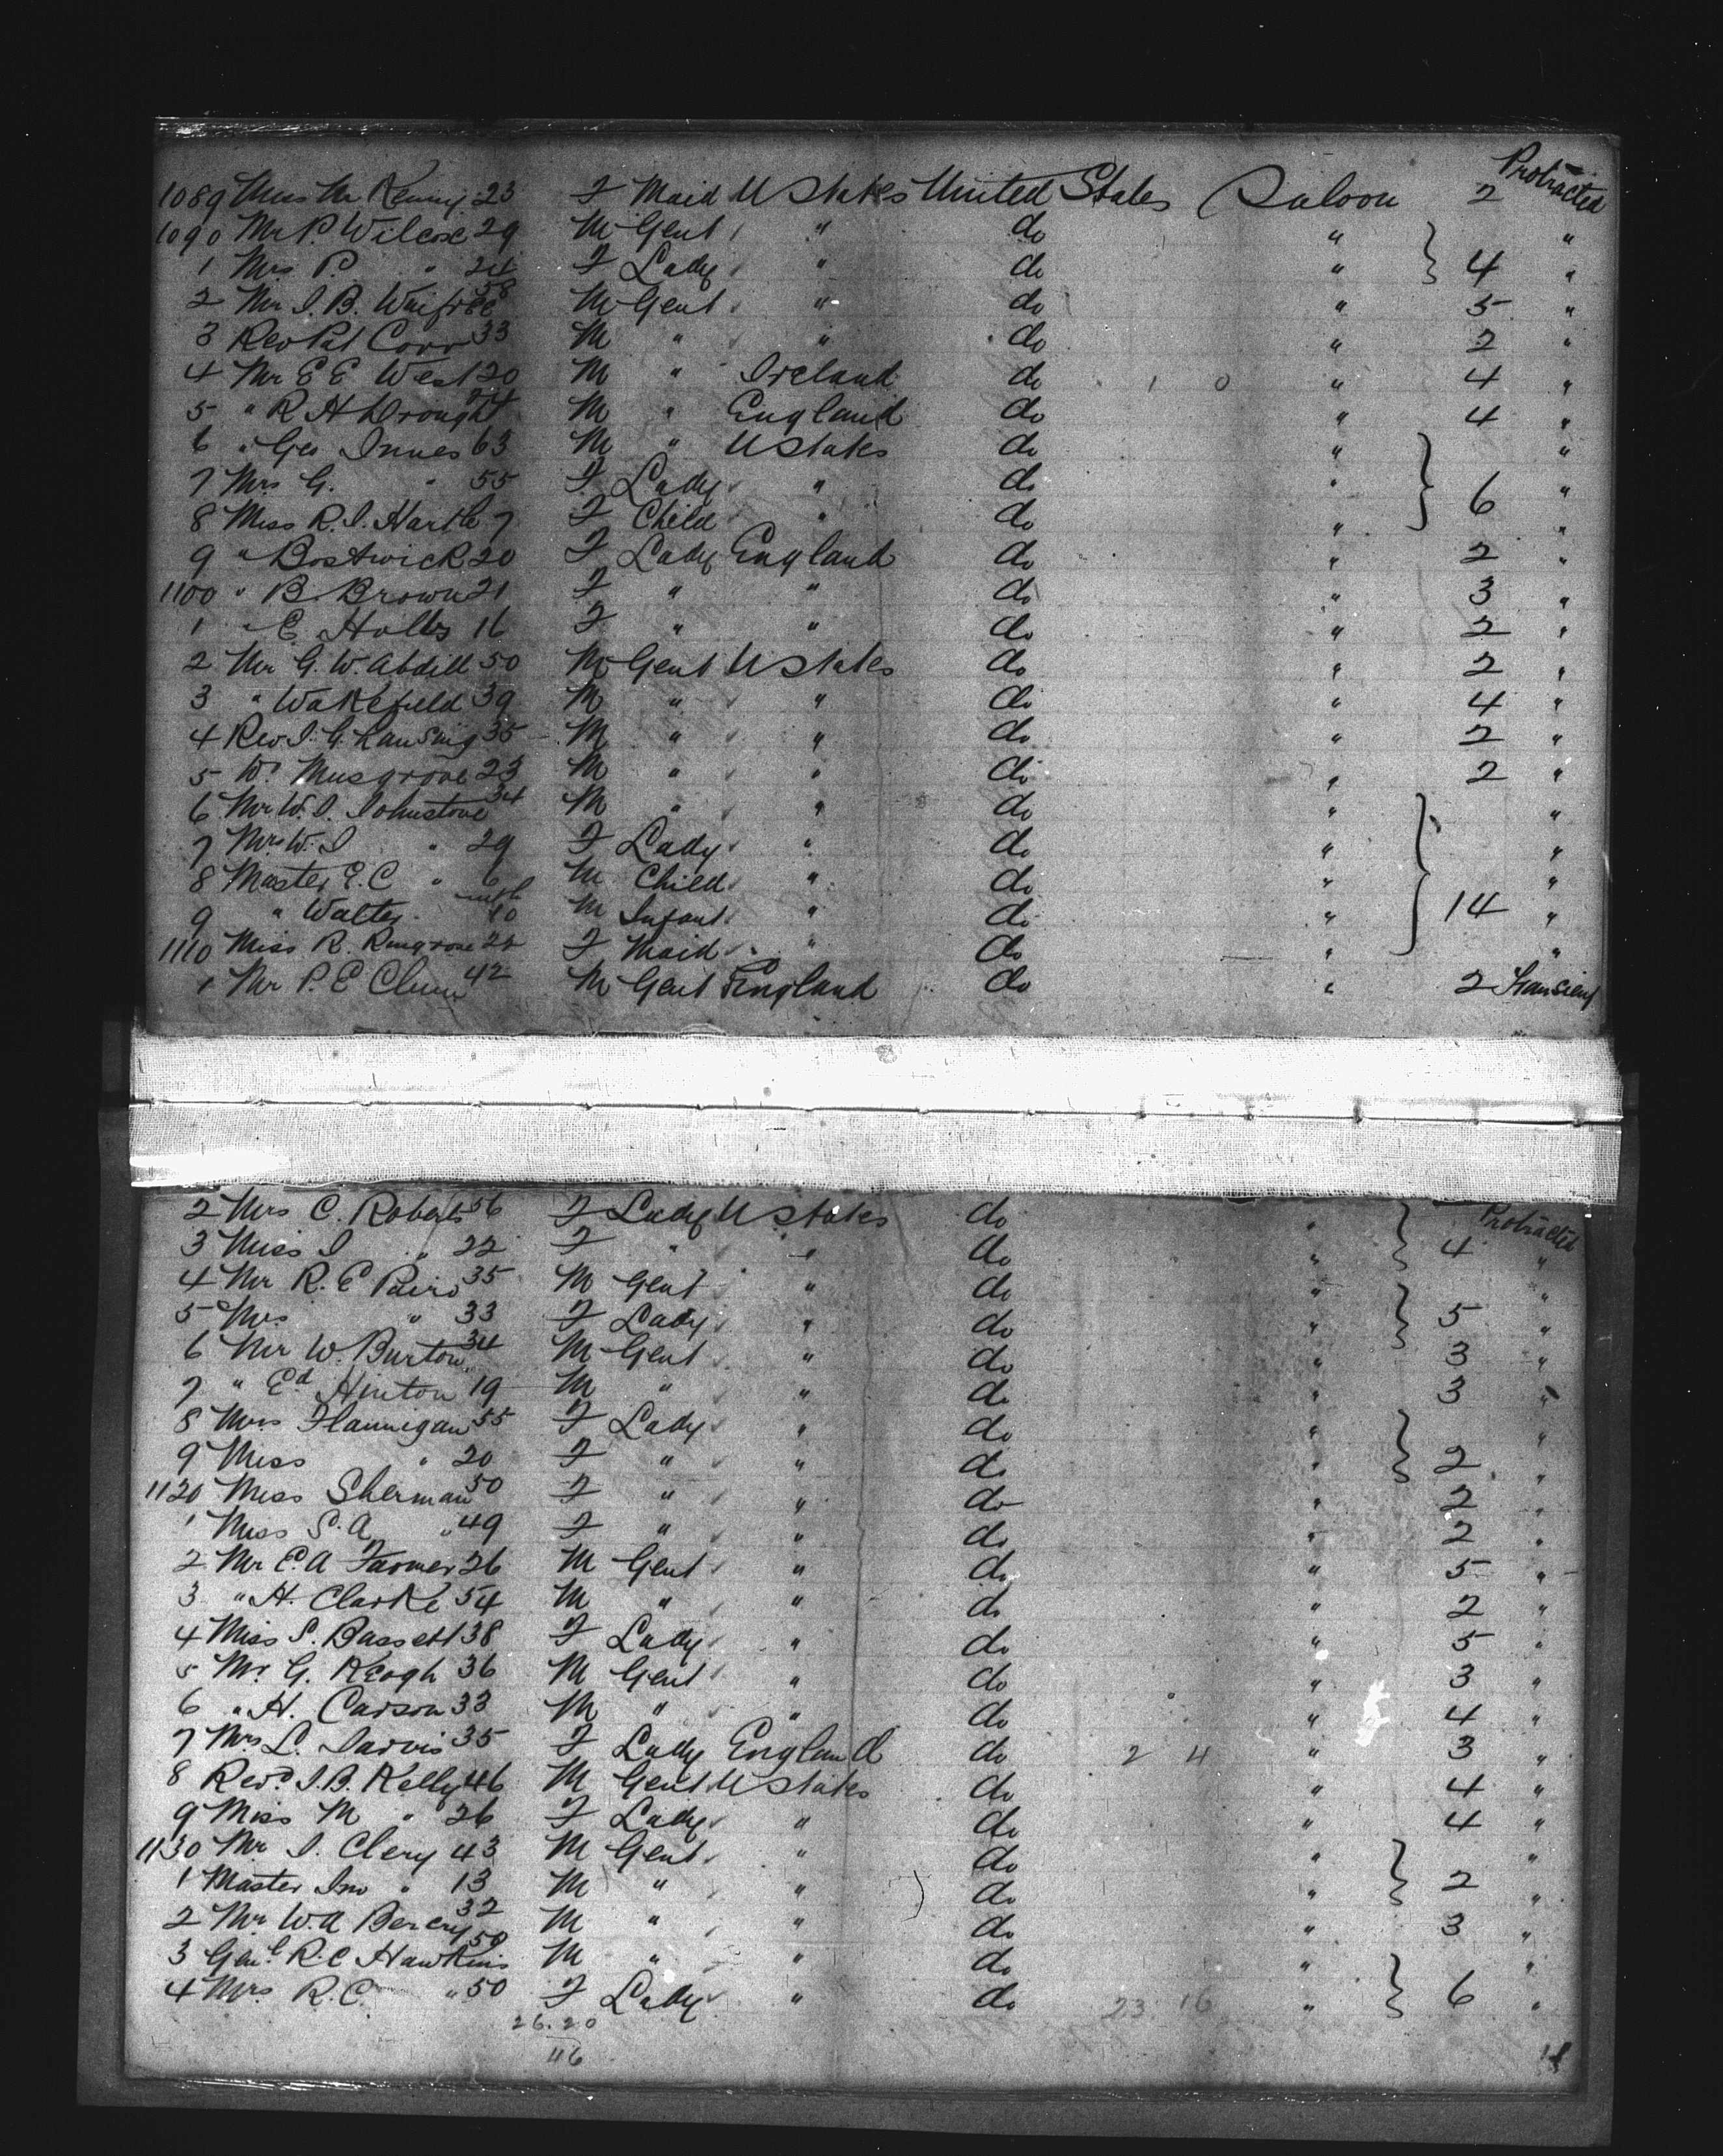 1089 Miss M Kenny 23 F Maid U States United States Saloon 2 Protracted
1090 Mr P. Wilcox 29 M Gent " do "  "
1 Mrs P. " 24 F Lady " do " 4 "
2 Mr J. B. 58 M Gent " do " 5 "
3 Rev Pat Corr 33 M " " do " 2 "
4 Mr E E West 20 M " Ireland do 1 0 " 4 "
5 " R H Drought M " England do " 4 "
6 " Geo Innes 63 M " U States do " "
7 Mrs G. " 55 F Lady " do " 6 "
8 Miss R. J. 7 F Child " do " "
9 " Bostwick 20 F Lady England do " 2 "
1100 " B. Brown 21 F " " do " 3 "
1 " E 16 F " " do " 2 "
2 Mr G. W. Abdill 50 M Gent U States do " 2 "
3 " Wakefield 39 M " " do " 4 "
4 Rev J. G. Lansing 35 M " " do " 2 "
5 Wm Musgrove 23 M " " do " 2 "
6 Mr W. J. Johnstone 34 M " " do " "
7 Mrs W. J " 29 F Lady " do " "
8 Master E. C " 6 M Child " do " "
9 " Walter mth 10 M Infant " do " 14 "
1110 Miss R. 22 F Maid " do " "
1 Mr P. E 42 M Gent England do " 2 Transient
2 Mrs C. Roberts 56 F Lady U States do " Protracted
3 Miss J " 22 F " " do " 4 "
4 Mr R. E 35 M Gent " do " "
5 Mrs " 33 F Lady " do " 5 "
6 Mr W. Burton 34 M Gent " do " 3 "
7 " Ed Hinton 19 M " " do " 3 "
8 Mrs Flannigan 55 F Lady " do " "
9 Miss " 20 F " " do " 2 "
1120 Miss Sherman 50 F " " do " 2 "
1 Miss S. A " 49 F " " do " 2 "
2 Mr E. A Farmer 26 M Gent " do " 5 "
3 " H. Clarke 54 M " " do " 2 "
4 Miss S. Bassett 38 F Lady " do " 5 "
5 Mr G. Keogh 36 M Gent " do " 3 "
6 " H. Carson 33 M " " do " 4 "
7 Mrs L. Jarvis 35 F Lady England do 2 4 " 3 "
8 Revd J. B. Kelly 46 M Gent U States do " 4 "
9 Miss M " 26 F Lady " do " 4 "
1130 Mr J. Clery 43 M Gent " do " "
1 Master Jno " 13 M " " do " 2 "
2 Mr W. A 32 M " " do " 3 "
3 Genl R. C Hawkins 50 M " " do " "
4 Mrs R. C. " 50 F Lady " do 23 16 " 6 "
26. 20
46